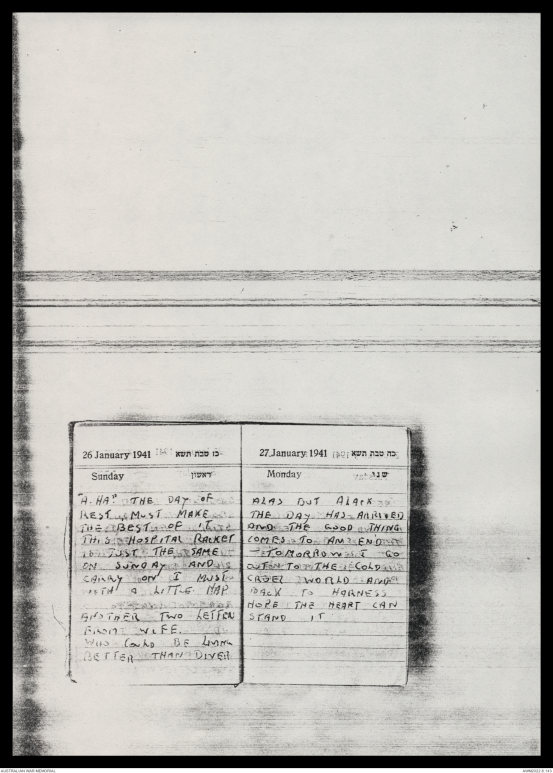 26 January 1941 כו טבת תשא
Sunday ראשון
"A.HA" THE DAY OF
REST MUST MAKE
THE BEST OF IT
THIS HOSPITAL RACKET
IS JUST THE SAME
ON SUNDAY AND
CARRY ON I MUST
WITH A LITTLE NAP
ANOTHER TWO LETTERS
FROM WIFE.
WHO COULD BE LIVING
BETTER THAN DIVER
27 January 1941 כה טבת תשא
Monday שני
ALAS BUT ALACK
THE DAY HAS ARRIVED
AND THE GOOD THING
COMES TO AN END
- TOMORROW I GO
OUT TO THE COLD
CRUEL WORLD AND
BACK TO HARNESS
HOPE THE HEART CAN
STAND IT
AUSTRALIAN WAR MEMORIAL